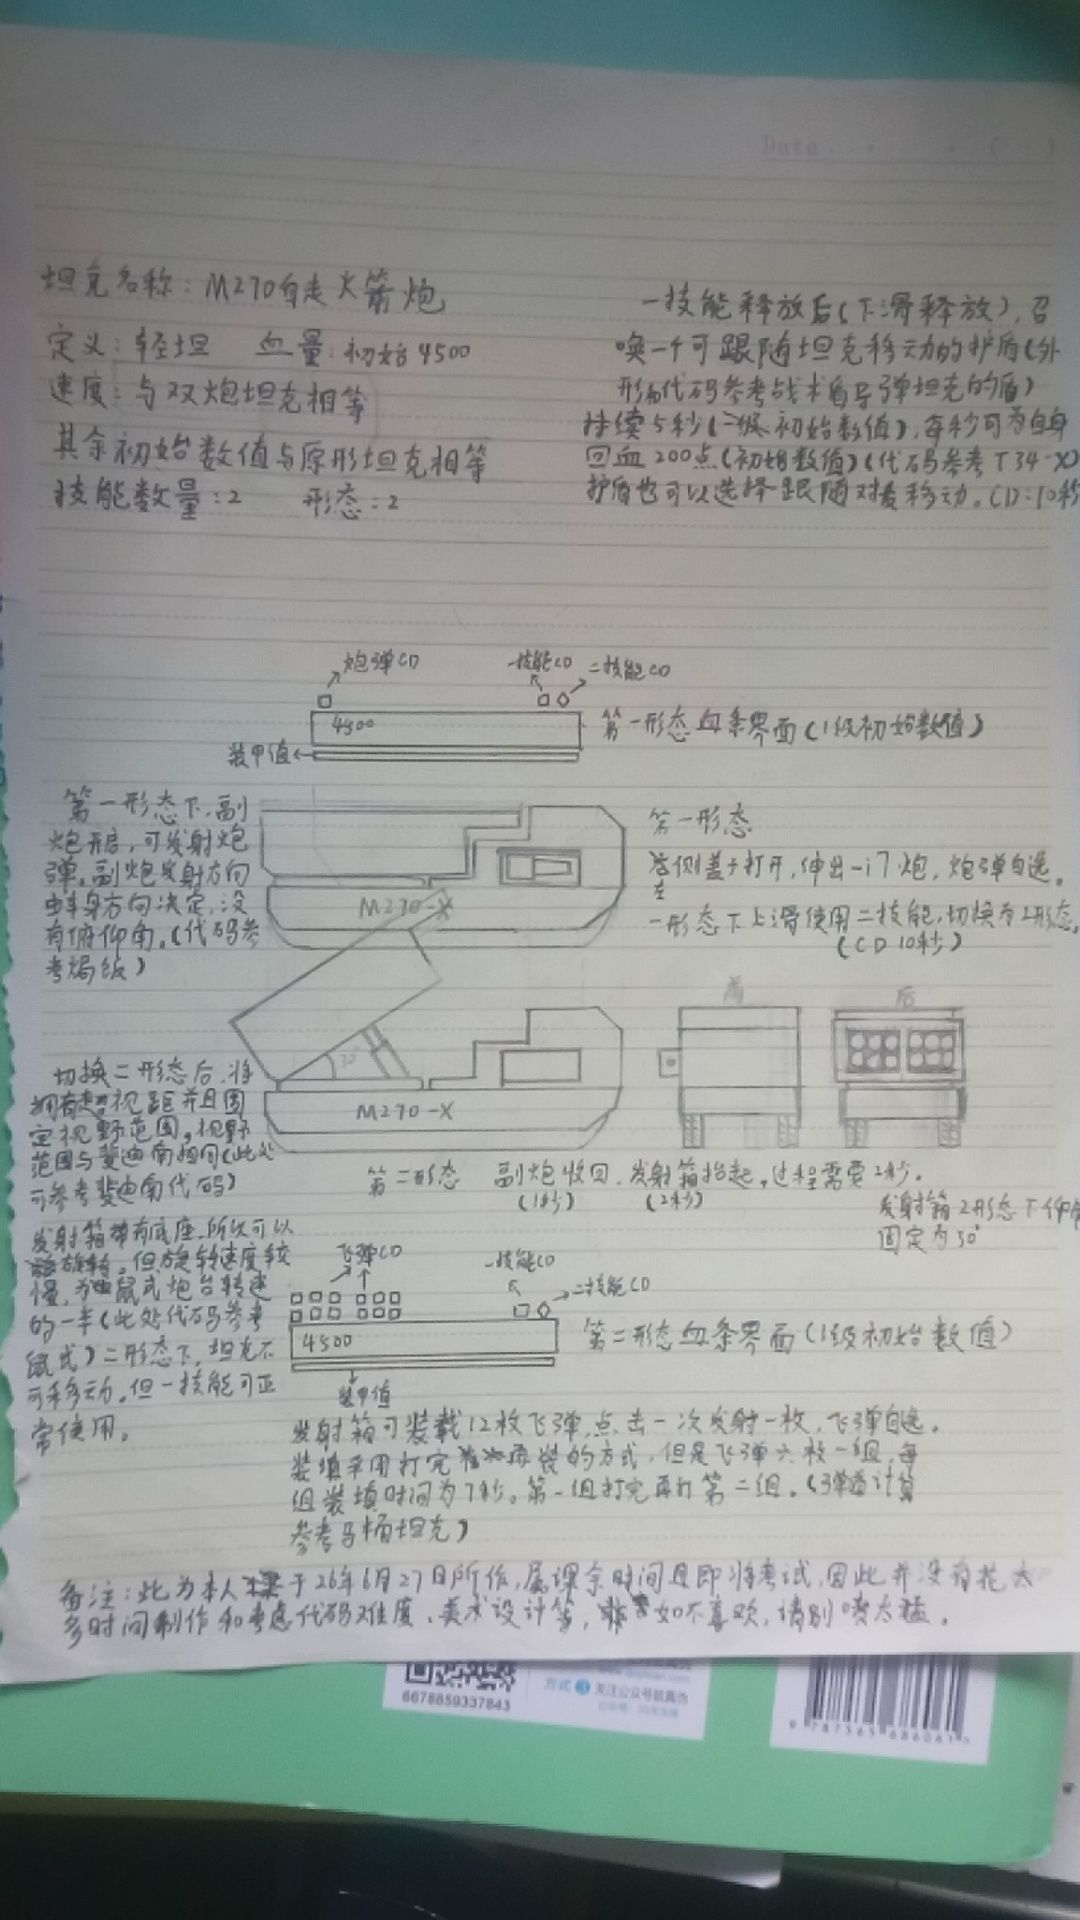 Date
坦克名称：M270自走火箭炮
定义：轻坦 血量：初始4500
速度：与双炮坦克相等
其余初始数值与原形坦克相等
技能数量：2 形态：2
一技能释放后(下滑释放)，召
唤一个可跟随坦克移动的护盾(外
形和代码参考战术自导弹坦克的盾)
持续5秒(一级初始数值)，每秒可为自身
回血200点(初始数值)(代码参考T34-X)
护盾也可以选择跟随对友移动。CD:10秒
炮弹CD
一技能CD
二技能CD
4500
第一形态血条界面(1级初始数值)
装甲值
第一形态下，副
炮开启，可发射炮
弹。副炮发射方向
由车身方向决定，没
有俯仰角。(代码参
考焗饭)
M270-X
第一形态
左侧盖子打开，伸出一门炮，炮弹自选。
一形态下上滑使用二技能，切换为2形态，
(CD 10秒)
切换二形态后，将
拥有超视距并且固
定视野范围，视野
范围与斐迪南相同(此处
可参考斐迪南代码)
30°
M270-X
前
后
第二形态 副炮收回，发射箱抬起，过程需要2秒。
(1秒) (2秒)
发射箱2形态下仰角
固定为30°
发射箱带有底座，所以可以
旋转，但旋转速度较
慢，为鼠式炮台转速
的一半(此处代码参考
鼠式)二形态下，坦克不
可移动，但一技能可正
常使用。
飞弹CD
一技能CD
二技能CD
4500
第二形态血条界面(1级初始数值)
装甲值
发射箱可装载12枚飞弹，点击一次发射一枚，飞弹自选。
装填采用打完再装的方式，但是飞弹六枚一组，每
组装填时间为7秒。第一组打完再打第二组。(弹道计算
参考马桶坦克)
备注：此为本人于26年6月27日所作，属课余时间且即将考试，因此并没有花太
多时间制作和考虑代码难度、美术设计等，如不喜欢，请别喷太猛。
6678859337843
方式3 关注公众号验真伪
9 787565 686061 >